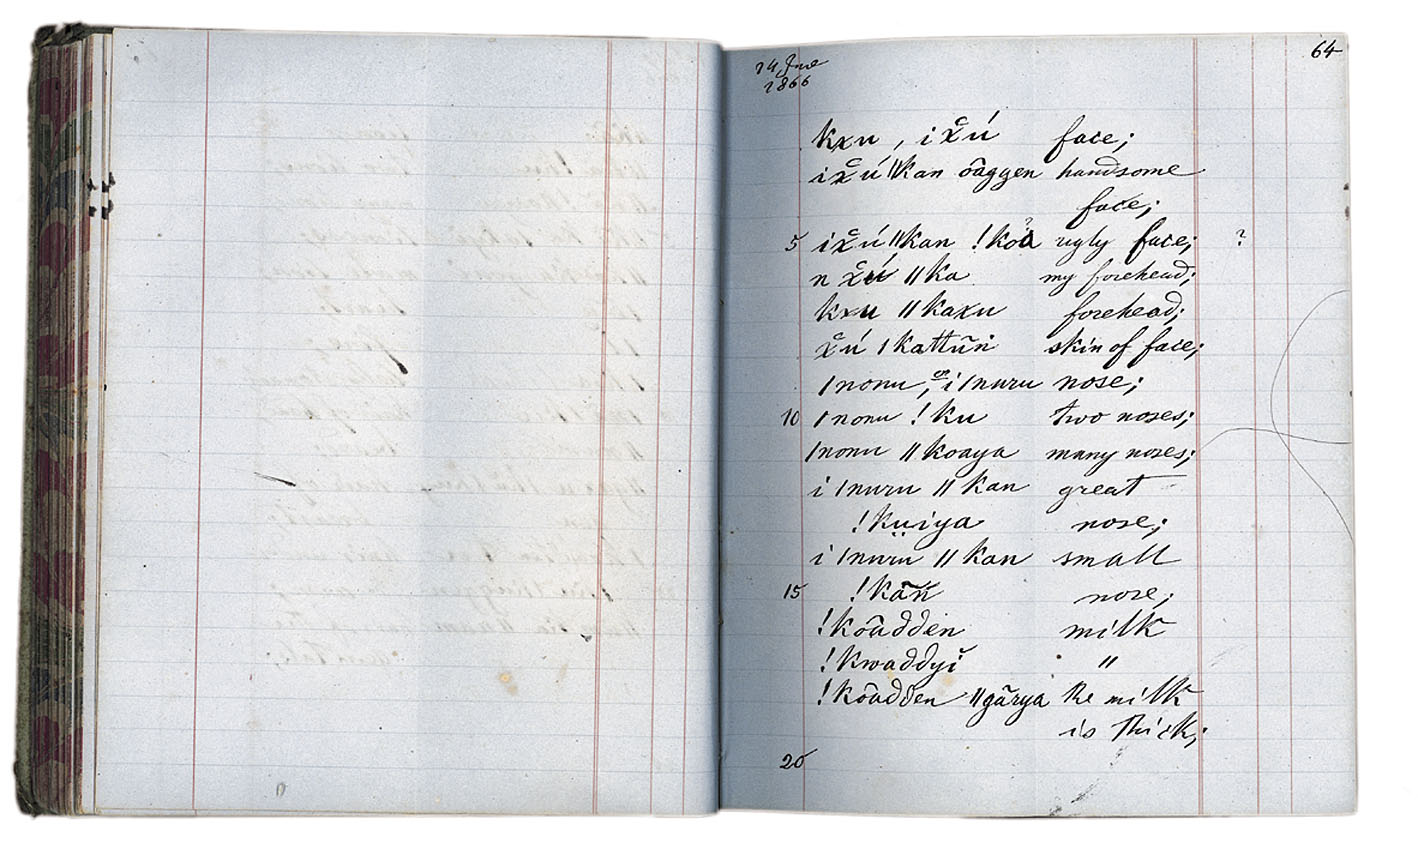 64
24 June
1866
kxu, i x̆ú face;
i x̆ú ǁkan õäggen handsome
face;
5 i x̆ú ǁkan !koä ugly face; ?
n x̆ú ǁka my forehead;
kxu ǁkaxu forehead;
x̆ú ǀkattũn skin of face;
ǀnonu, or i ǀnuru nose;
10 ǀnonu !ku two noses;
ǀnonu ǁkoaya many noses;
i ǀnuru ǁkan great
!kuiya nose;
i ǀnuru ǁkan small
15 !kãn nose;
!kõãdden milk
!kwaddyĭ "
!kõãdden ǁgãrya the milk
is thick;
20